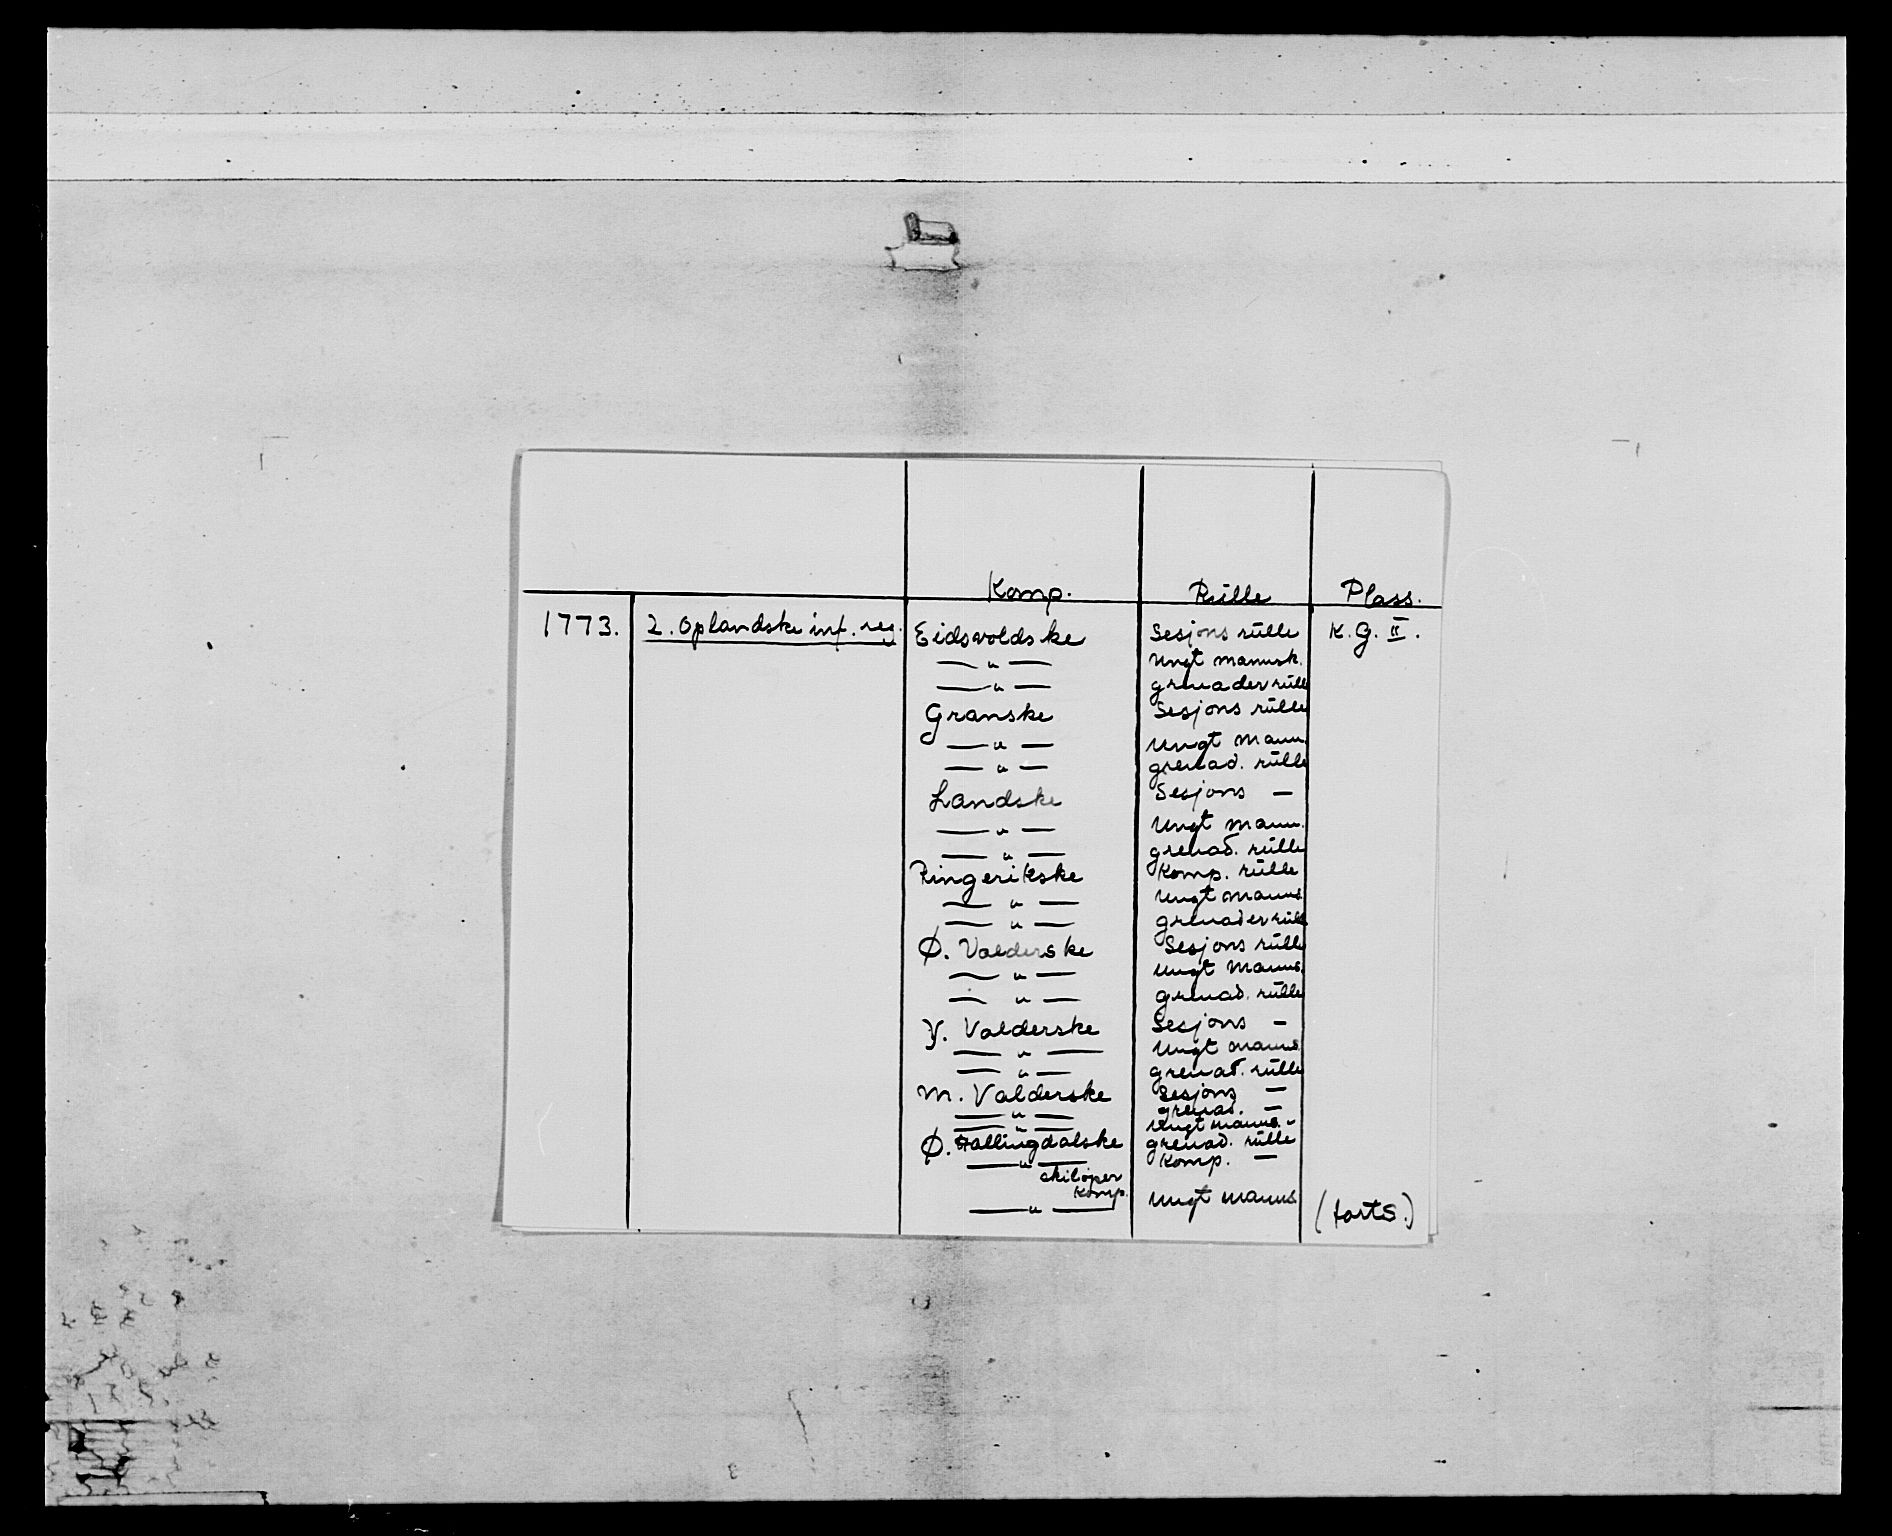 Komp. Rülle Plass.
1773. 2. Oplandske inf. reg. Eidsvoldske Sesjons rülle K.G. II.
— " — Ungt mannsk.
— " — grenader rülle
Granske Sesjons rülle
— " — Ungt mann.
— " — grenad. rülle
Landske Sesjons —
— " — Ungt mann.
— " — grenad. rülle
Ringerikske Komp. rülle
— " — Ungt manns
— " — grenader rülle
Ø. Valderske Sesjons rülle
— " — Ungt manns.
— " — grenad. rülle
Y. Valderske Sesjons —
— " — Ungt manns.
— " — grenad. rülle
M. Valderske Sesjons —
— " — grenad. —
— " — Ungt manns. "
Ø. Hallingdalske grenad. rülle
— " — Komp. —
skiløper
Komp.
— " — Ungt manns
(forts.)